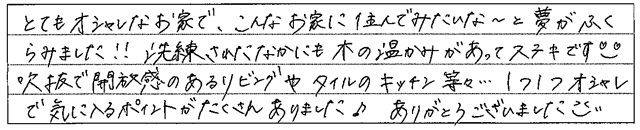 とてもオシャレなお家で、こんなお家に住んでみたいな～と夢がふく
らみました!! 洗練されたなかにも木の温かみがあってステキです
吹抜で開放感のあるリビングやタイルのキッチン等々… 1つ1つオシャレ
で気に入るポイントがたくさんありました♪ ありがとうございました